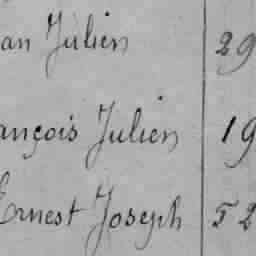 an Julien 29
ançois Julien 19
Ernest Joseph 52